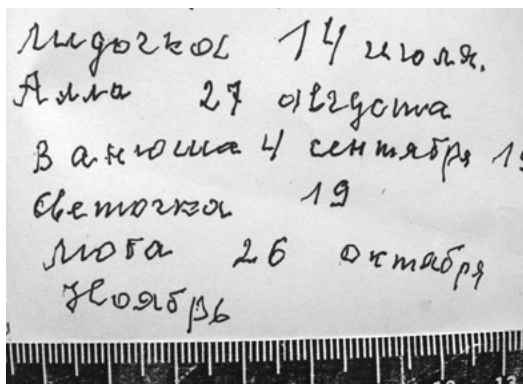 Лидочка 14 июля.
Алла 27 августа
Ванюша 4 сентября 19
Светочка 19
26 октября
Ноябрь